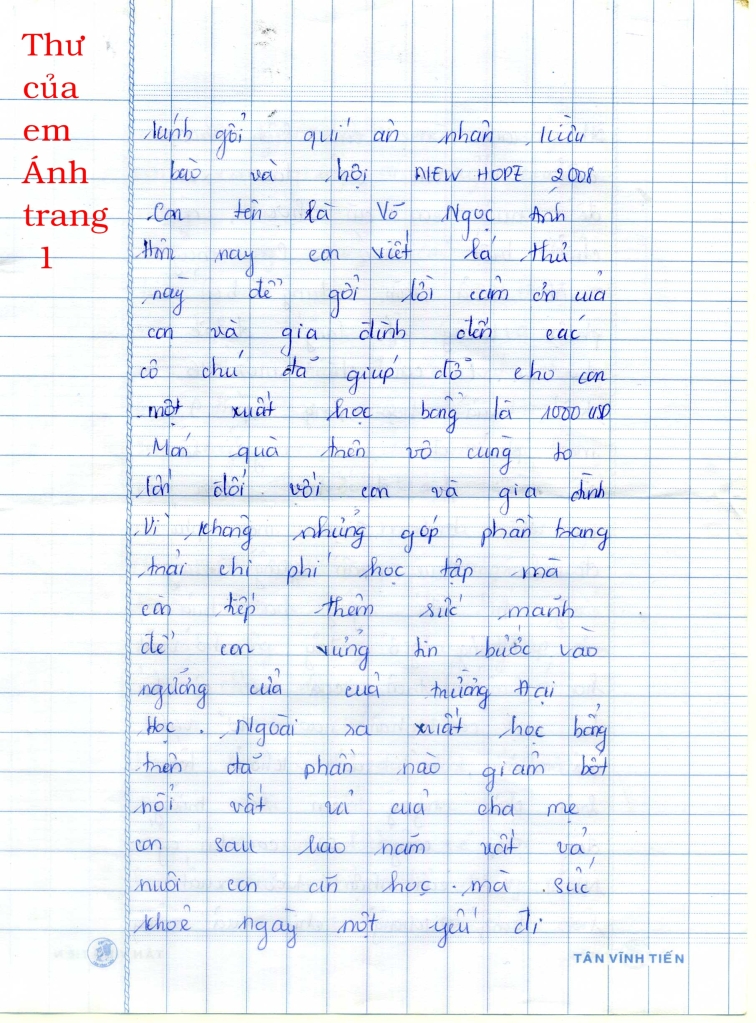 Thư
của
em
Ánh
trang
1
Kính gởi quí ân nhân kiều
bào và hội NEW HOPE 2008
Con tên là Võ Ngọc Ánh
Hôm nay con viết lá thư
này để gởi lời cảm ơn của
con và gia đình đến các
cô chú đã giúp đỡ cho con
một xuất học bổng là 1000 USD
Món quà trên vô cùng to
lớn đối với con và gia đình
Vì không những góp phần trang
trải chi phí học tập mà
còn tiếp thêm sức mạnh
để con vửng tin bước vào
ngưỡng cửa cuả trường Đại
Học . Ngoài ra xuất học bổng
trên đã phần nào giảm bớt
nổi vất vả cuả cha mẹ
con sau bao năm vất vả
nuôi con ăn học . mà sức
khoẻ ngaỳ một yếu đi
TÂN VĨNH TIẾN